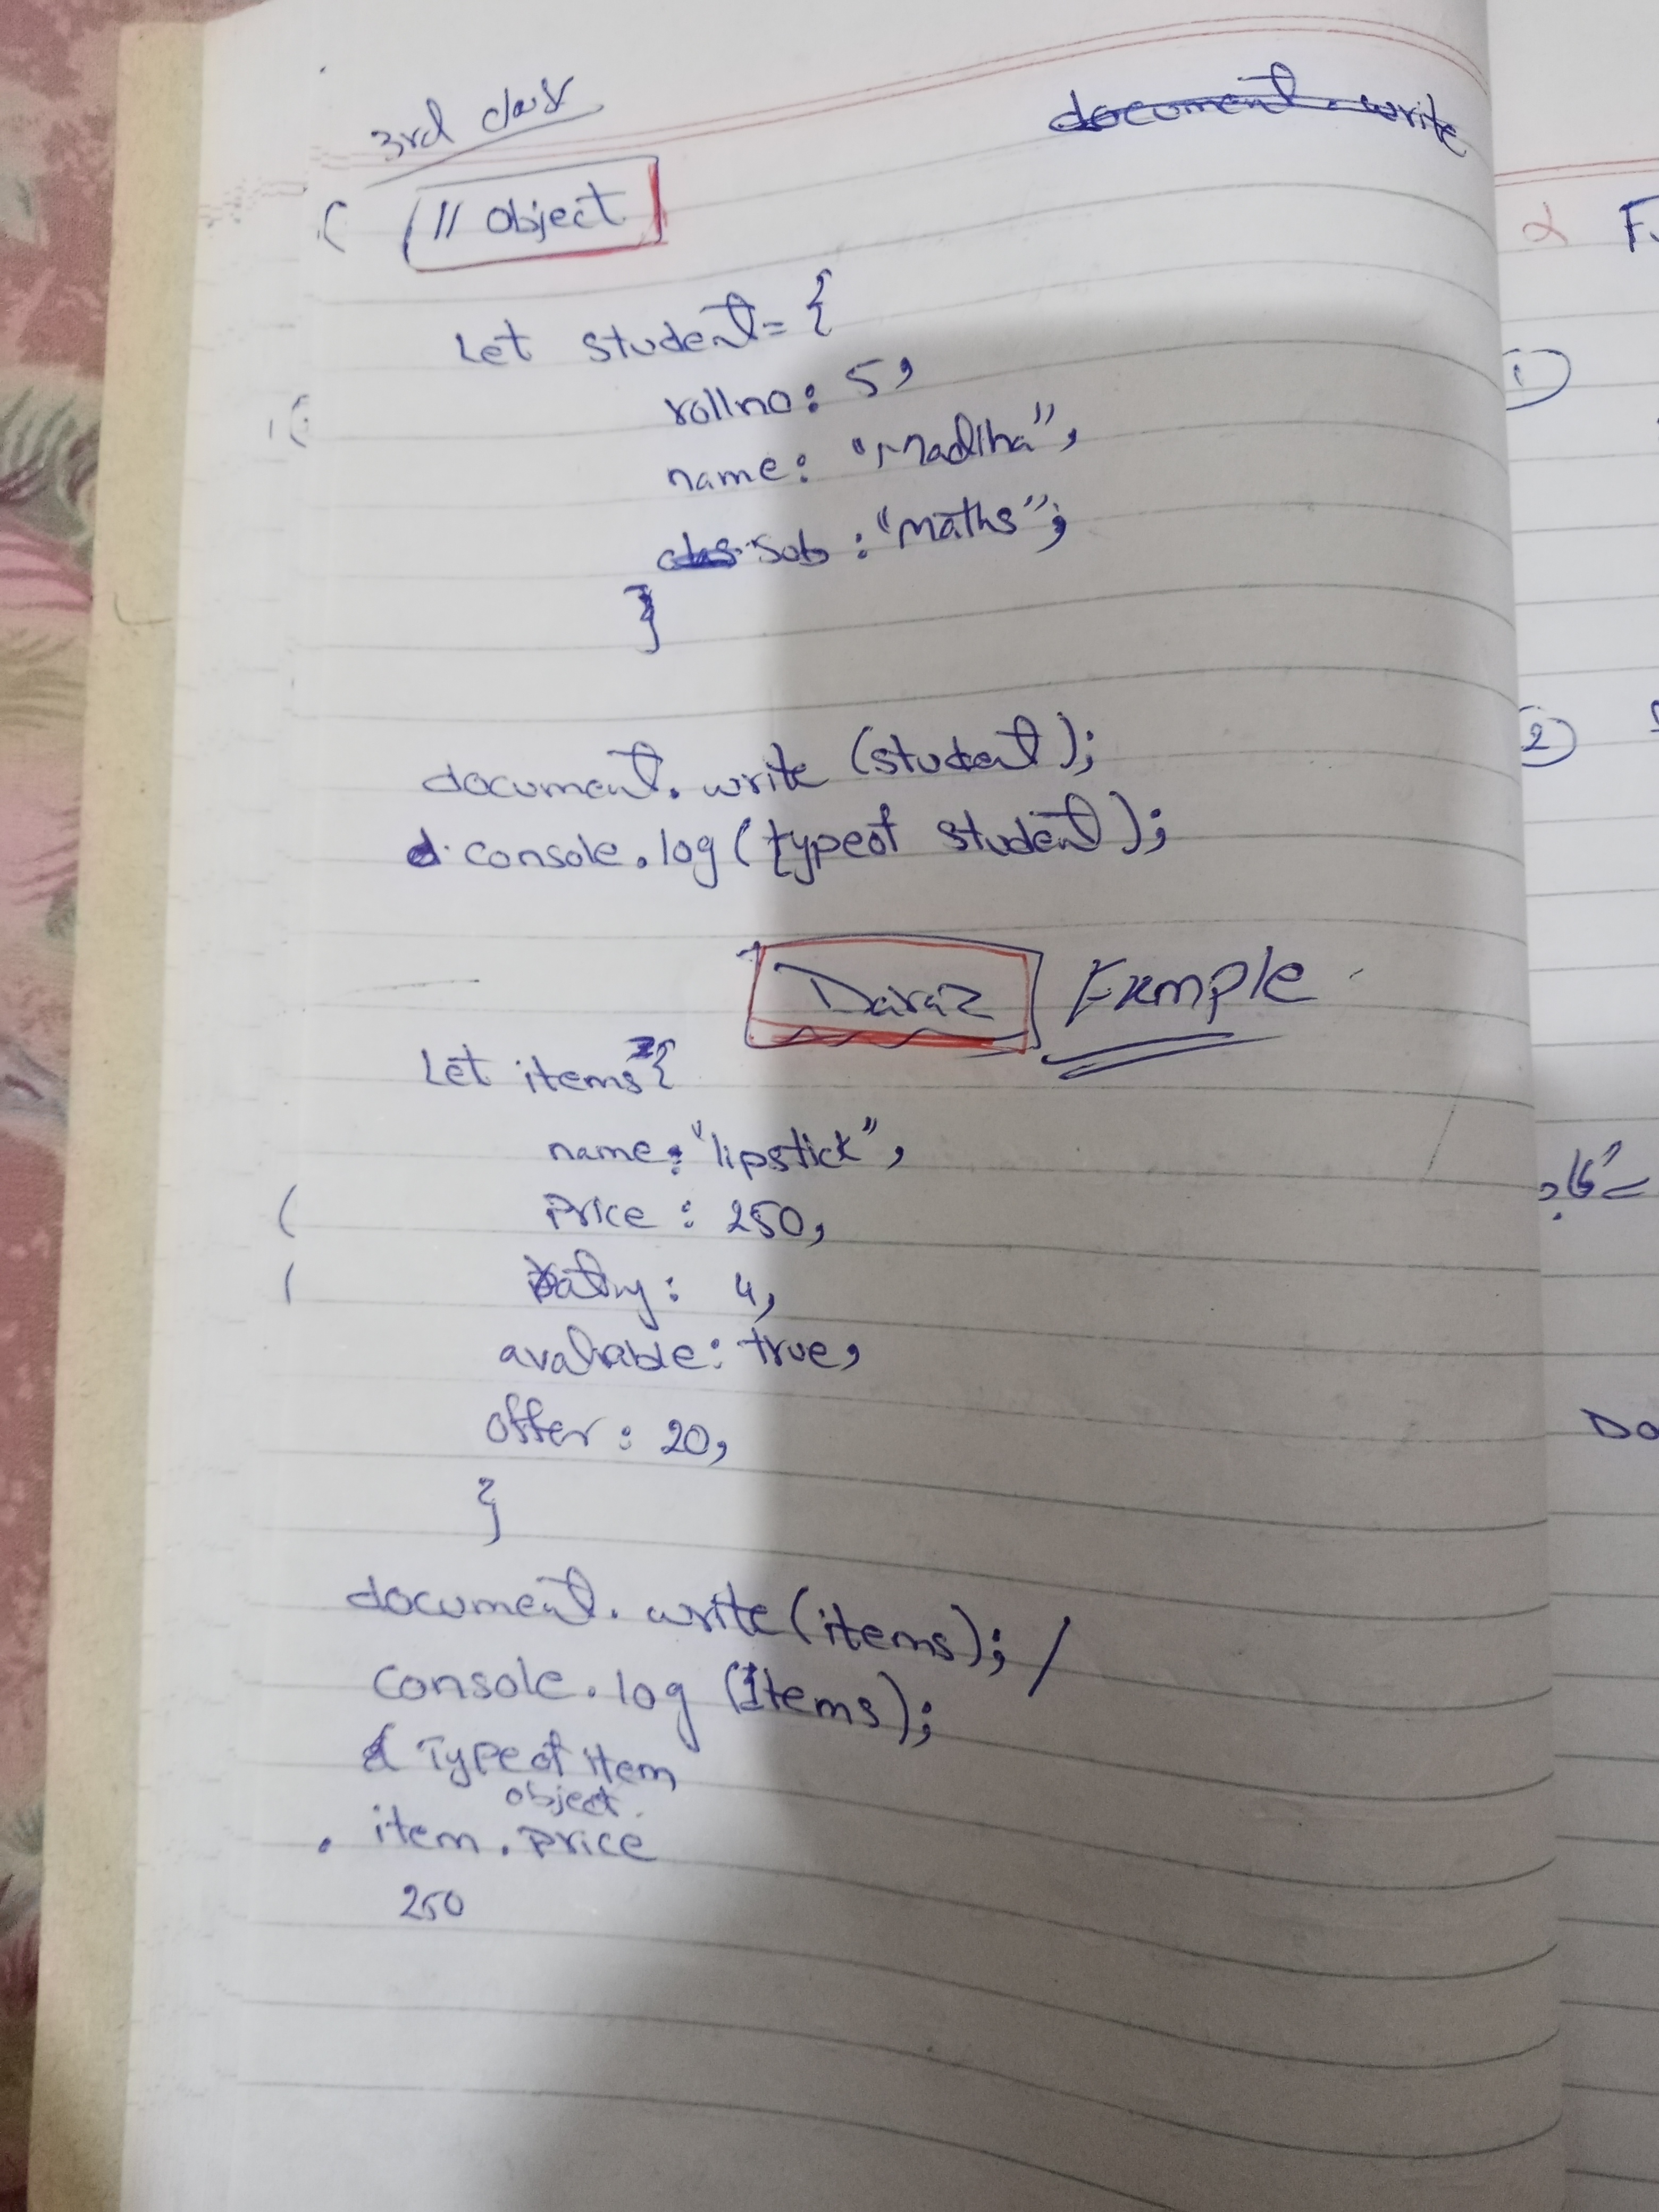 3rd class
document.write
// Object
Let student = {
rollno: 5,
name: "Madiha",
sub : "maths";
}
document.write (student);
console.log (typeof student);
Daraz Exmple
Let items = {
name: "lipstick",
Price : 250,
: 4,
avaliable: true,
offer : 20,
}
document.write(items); /
console.log (Items);
Typeof item
object.
. item.Price
250
2 F
1
2
Do